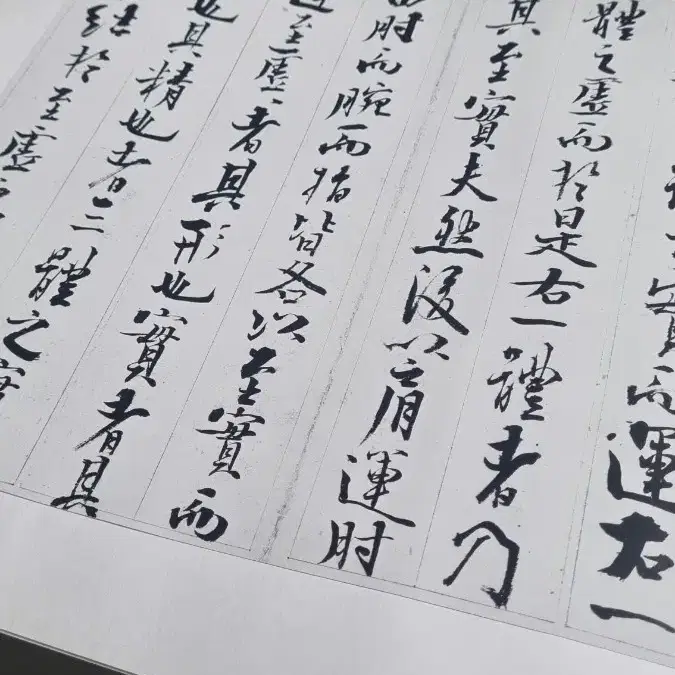 實而運右一
體之虛而於是右一體者乃
其至實夫然後以肩運肘
肘而腕而指皆各以至實而
至虛〻者其形也實者其
也其精也者三體之實
結於至虛之